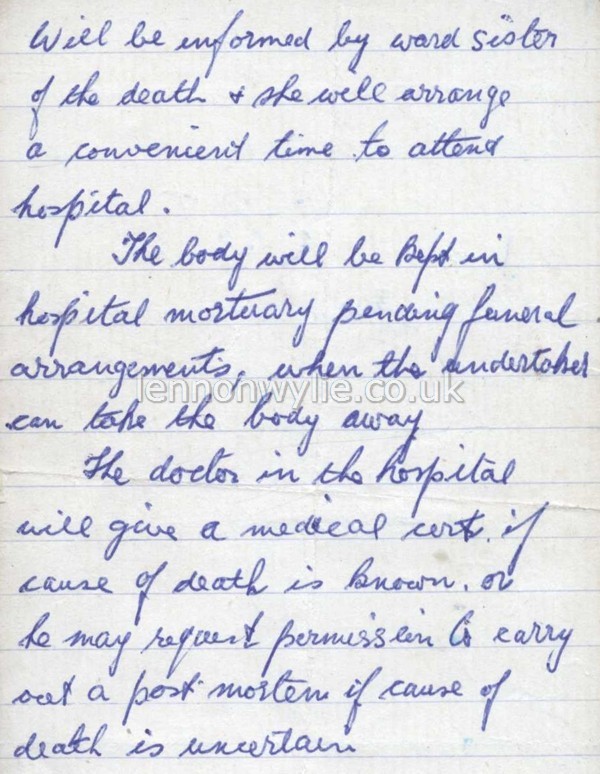 Will be informed by ward sister
of the death & she will arrange
a convenient time to attend
hospital.
The body will be kept in
hospital mortuary pending funeral
arrangements, when the undertaker
lennonwylie.co.uk
can take the body away
The doctor in the hospital
will give a medical cert. if
cause of death is known. or
he may request permission to carry
out a post mortem if cause of
death is uncertain